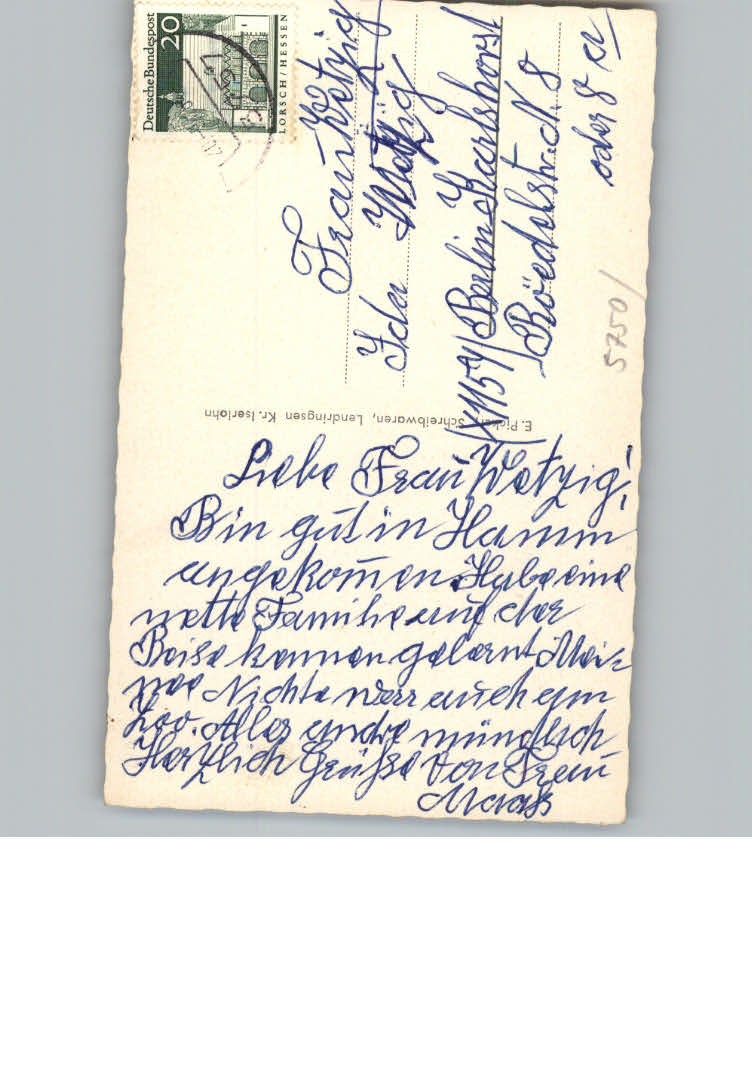 Deutsche Bundespost
20
LORSCH/HESSEN
Frau Wetzig
Ida Wetzig
1157 Berlin Karlshorst
Röedelstr. N. 8
oder 8 a
5750/
E. Pickert, Schreibwaren, Lendringsen Kr. Iserlohn
Liebe Frau Wetzig!
Bin gut in Hamm
angekom̅en. Habe eine
nette Familie auf der
Reise kennen gelernt. Mei-
ne Nichte war auch am
Zoo. Alles andre mündlich
Herzlich Grüße von Frau
Maaß